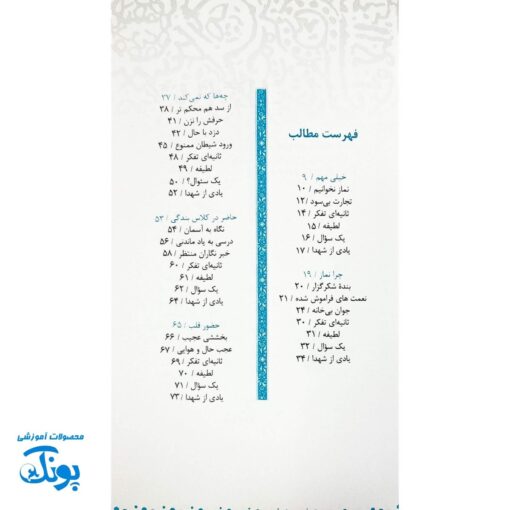 فهرست مطالب
خیلی مهم / ۹
نماز نخوانیم / ۱۰
تجارت بی‌سود / ۱۲
ثانیه‌ای تفکر / ۱۴
لطیفه / ۱۵
یک سؤال / ۱۶
یادی از شهدا / ۱۷
چرا نماز / ۱۹
بندهٔ شکرگزار / ۲۰
نعمت های فراموش شده / ۲۱
جوان بی‌خانه / ۲۴
ثانیه‌ای تفکر / ۳۰
لطیفه / ۳۱
یک سؤال / ۳۲
یادی از شهدا / ۳۴
چه‌ها که نمی‌کند / ۳۷
از سد هم محکم تر / ۳۸
حرفش را نزن / ۴۱
دزد با حال / ۴۲
ورود شیطان ممنوع / ۴۵
ثانیه‌ای تفکر / ۴۸
لطیفه / ۴۹
یک سئوال؟ / ۵۰
یادی از شهدا / ۵۲
حاضر در کلاس بندگی / ۵۳
نگاه به آسمان / ۵۴
درسی به یاد ماندنی / ۵۶
خبر نگاران منتظر / ۵۸
ثانیه‌ای تفکر / ۶۰
لطیفه / ۶۱
یک سؤال / ۶۲
یادی از شهدا / ۶۴
حضور قلب / ۶۵
بخششی عجیب / ۶۶
عجب حال و هوایی / ۶۷
ثانیه‌ای تفکر / ۶۹
لطیفه / ۷۰
یک سؤال / ۷۱
یادی از شهدا / ۷۳
محصولات آموزشی
پونک